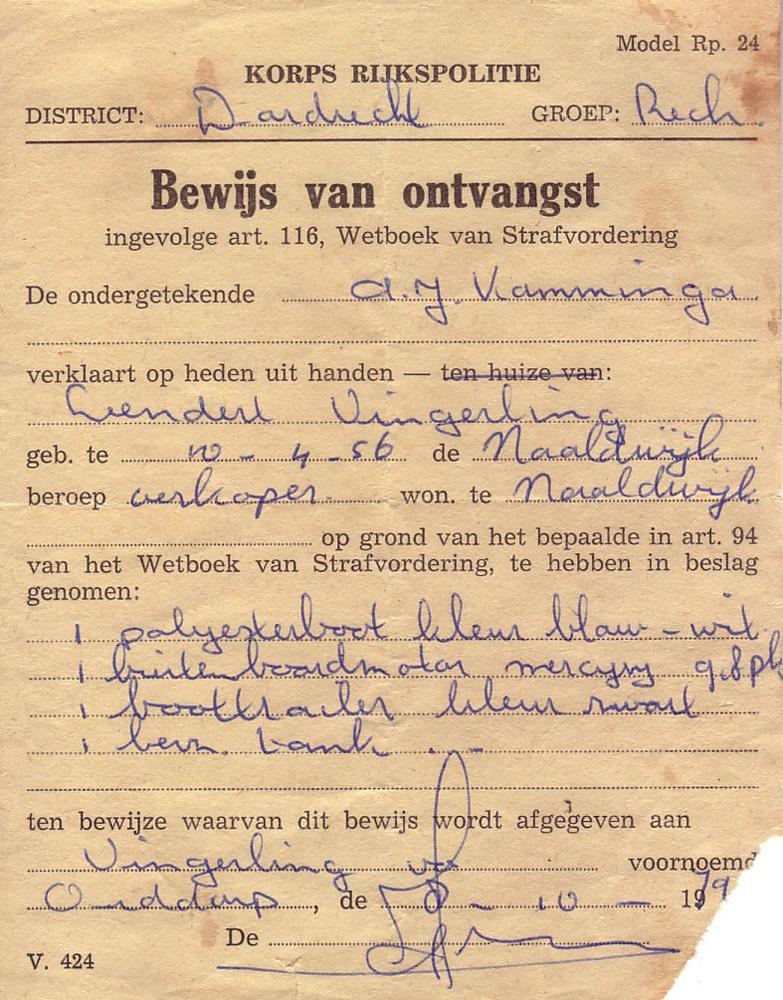 Model Rp. 24
KORPS RIJKSPOLITIE
DISTRICT: Dordrecht GROEP: Rech.
Bewijs van ontvangst
ingevolge art. 116, Wetboek van Strafvordering
De ondergetekende A.J. Kamminga
verklaart op heden uit handen — ten huize van:
Leendert Vingerling
geb. te 10 - 4 - 56 de Naaldwijk
beroep verkoper won. te Naaldwijk
op grond van het bepaalde in art. 94
van het Wetboek van Strafvordering, te hebben in beslag
genomen:
1 polyesterboot kleur blauw - wit
1 buitenboordmotor mercury 9.8 pk
1 boottrailer kleur zwart
1 benz. tank
ten bewijze waarvan dit bewijs wordt afgegeven aan
Vingerling voornoemd
Ouddorp, de 8 - 10 - 1979
De
V. 424